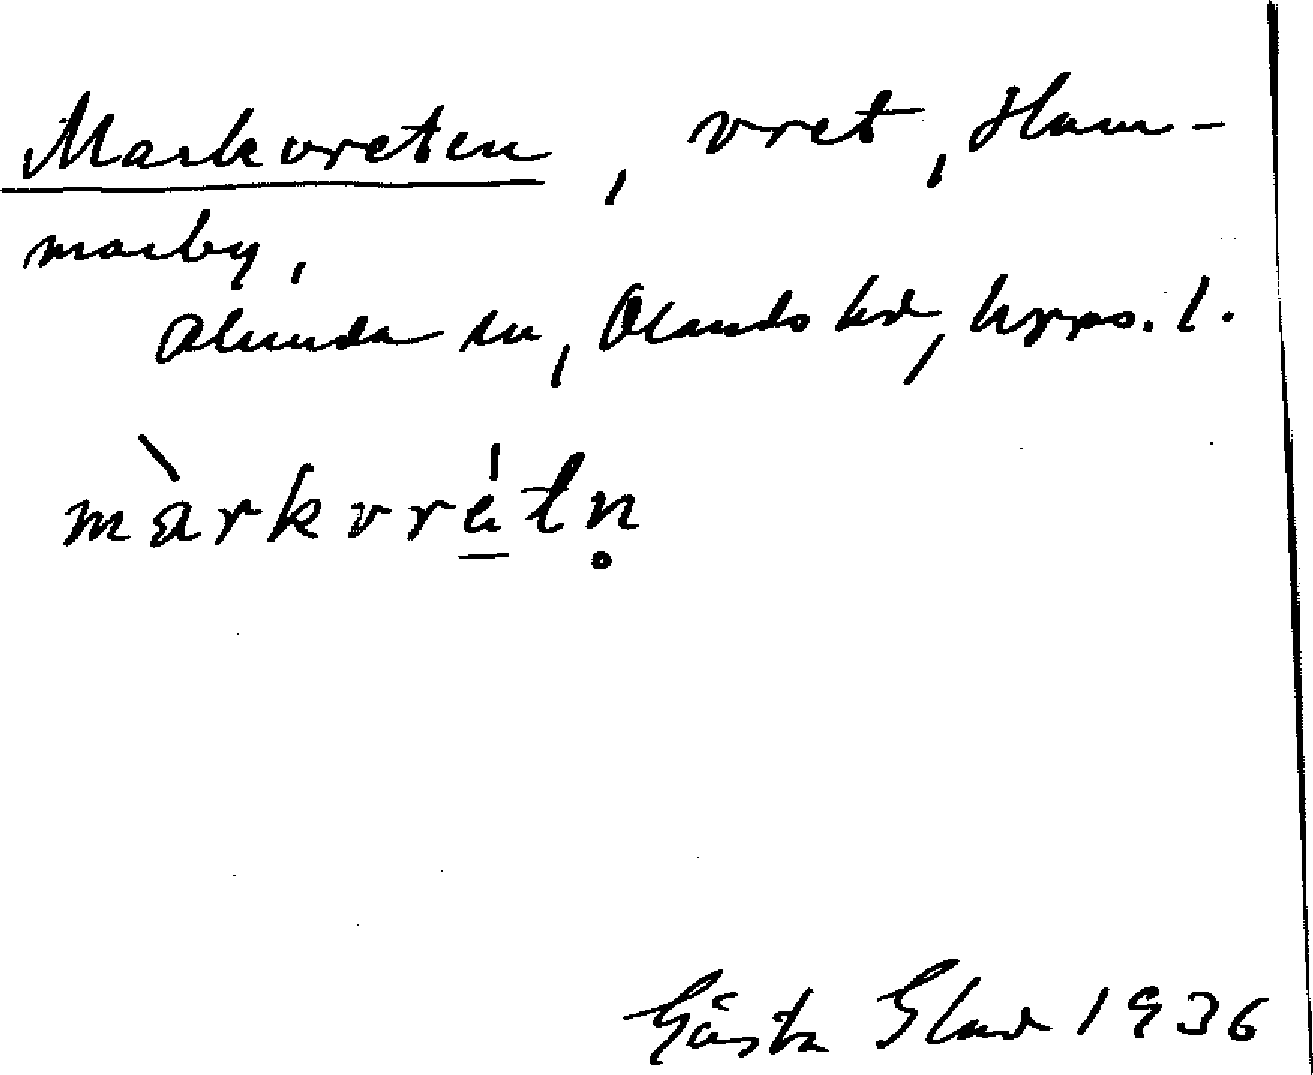 Markvreten, vret, Ham-
marby,
Alunda sn, Olands hd, Upps. l.
màrkvrétn̥
Gösta Glad 1936